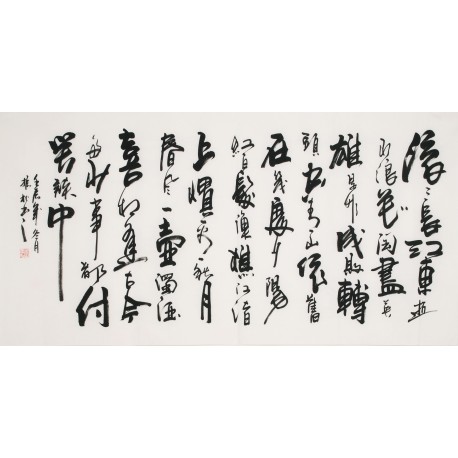 滚々長江東逝
水浪花淘盡英
雄是非成敗轉
頭空青山依舊
在幾度夕陽
紅白髮漁樵江渚
上慣看秋月
春風一壺濁酒
喜相逢古今
多少事都付
笑談中
壬辰年冬月